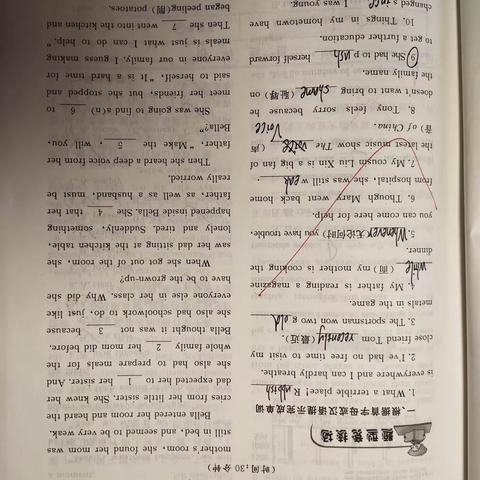 (时间:30 分钟)
题型竞技场
一、根据首字母或汉语提示完成单词
1. What a terrible place! R ubbish
is everywhere and I can hardly breathe.
2. I've had no free time to visit my
close friend Tom recently (最近).
3. The sportsman won two g old
metals in the game.
4. My father is reading a magazine
while (而) my mother is cooking the
dinner.
5. Whenever (无论何时) you have trouble,
you can come here for help.
6. Though Mary went back home
from hospital, she was still w eak.
7. My cousin Liu Xin is a big fan of
the latest music show The voice (声
音) of China. Voice
8. Tony feels sorry because he
doesn't want to bring shame (耻辱) on
the family name.
9. She had to p ush herself forward
to get a further education.
10. Things in my hometown have
changed s ince I was young.
mother's room, she found her mom was
still in bed, and seemed to be very weak.
Bella entered her room and heard the
cries from her little sister. She knew her
dad expected her to 1 her sister. And
she also had to prepare meals for the
whole family 2 her mom did before.
Bella thought it was not 3 because
she also had schoolwork to do, just like
everyone else in her class. Why did she
have to be the grown-up?
When she got out of the room, she
saw her dad sitting at the kitchen table,
lonely and tired. Suddenly, something
happened inside Bella. She 4 that her
father, as well as a husband, must be
really worried.
Then she heard a deep voice from her
father, "Make the 5, will you,
Bella?"
She was going to find a(n) 6 to
meet her friends, but she stopped and
said to herself, "It is a hard time for
everyone in our family. I guess making
meals is just what I can do to help."
Then she 7 went into the kitchen and
began peeling(削) potatoes.